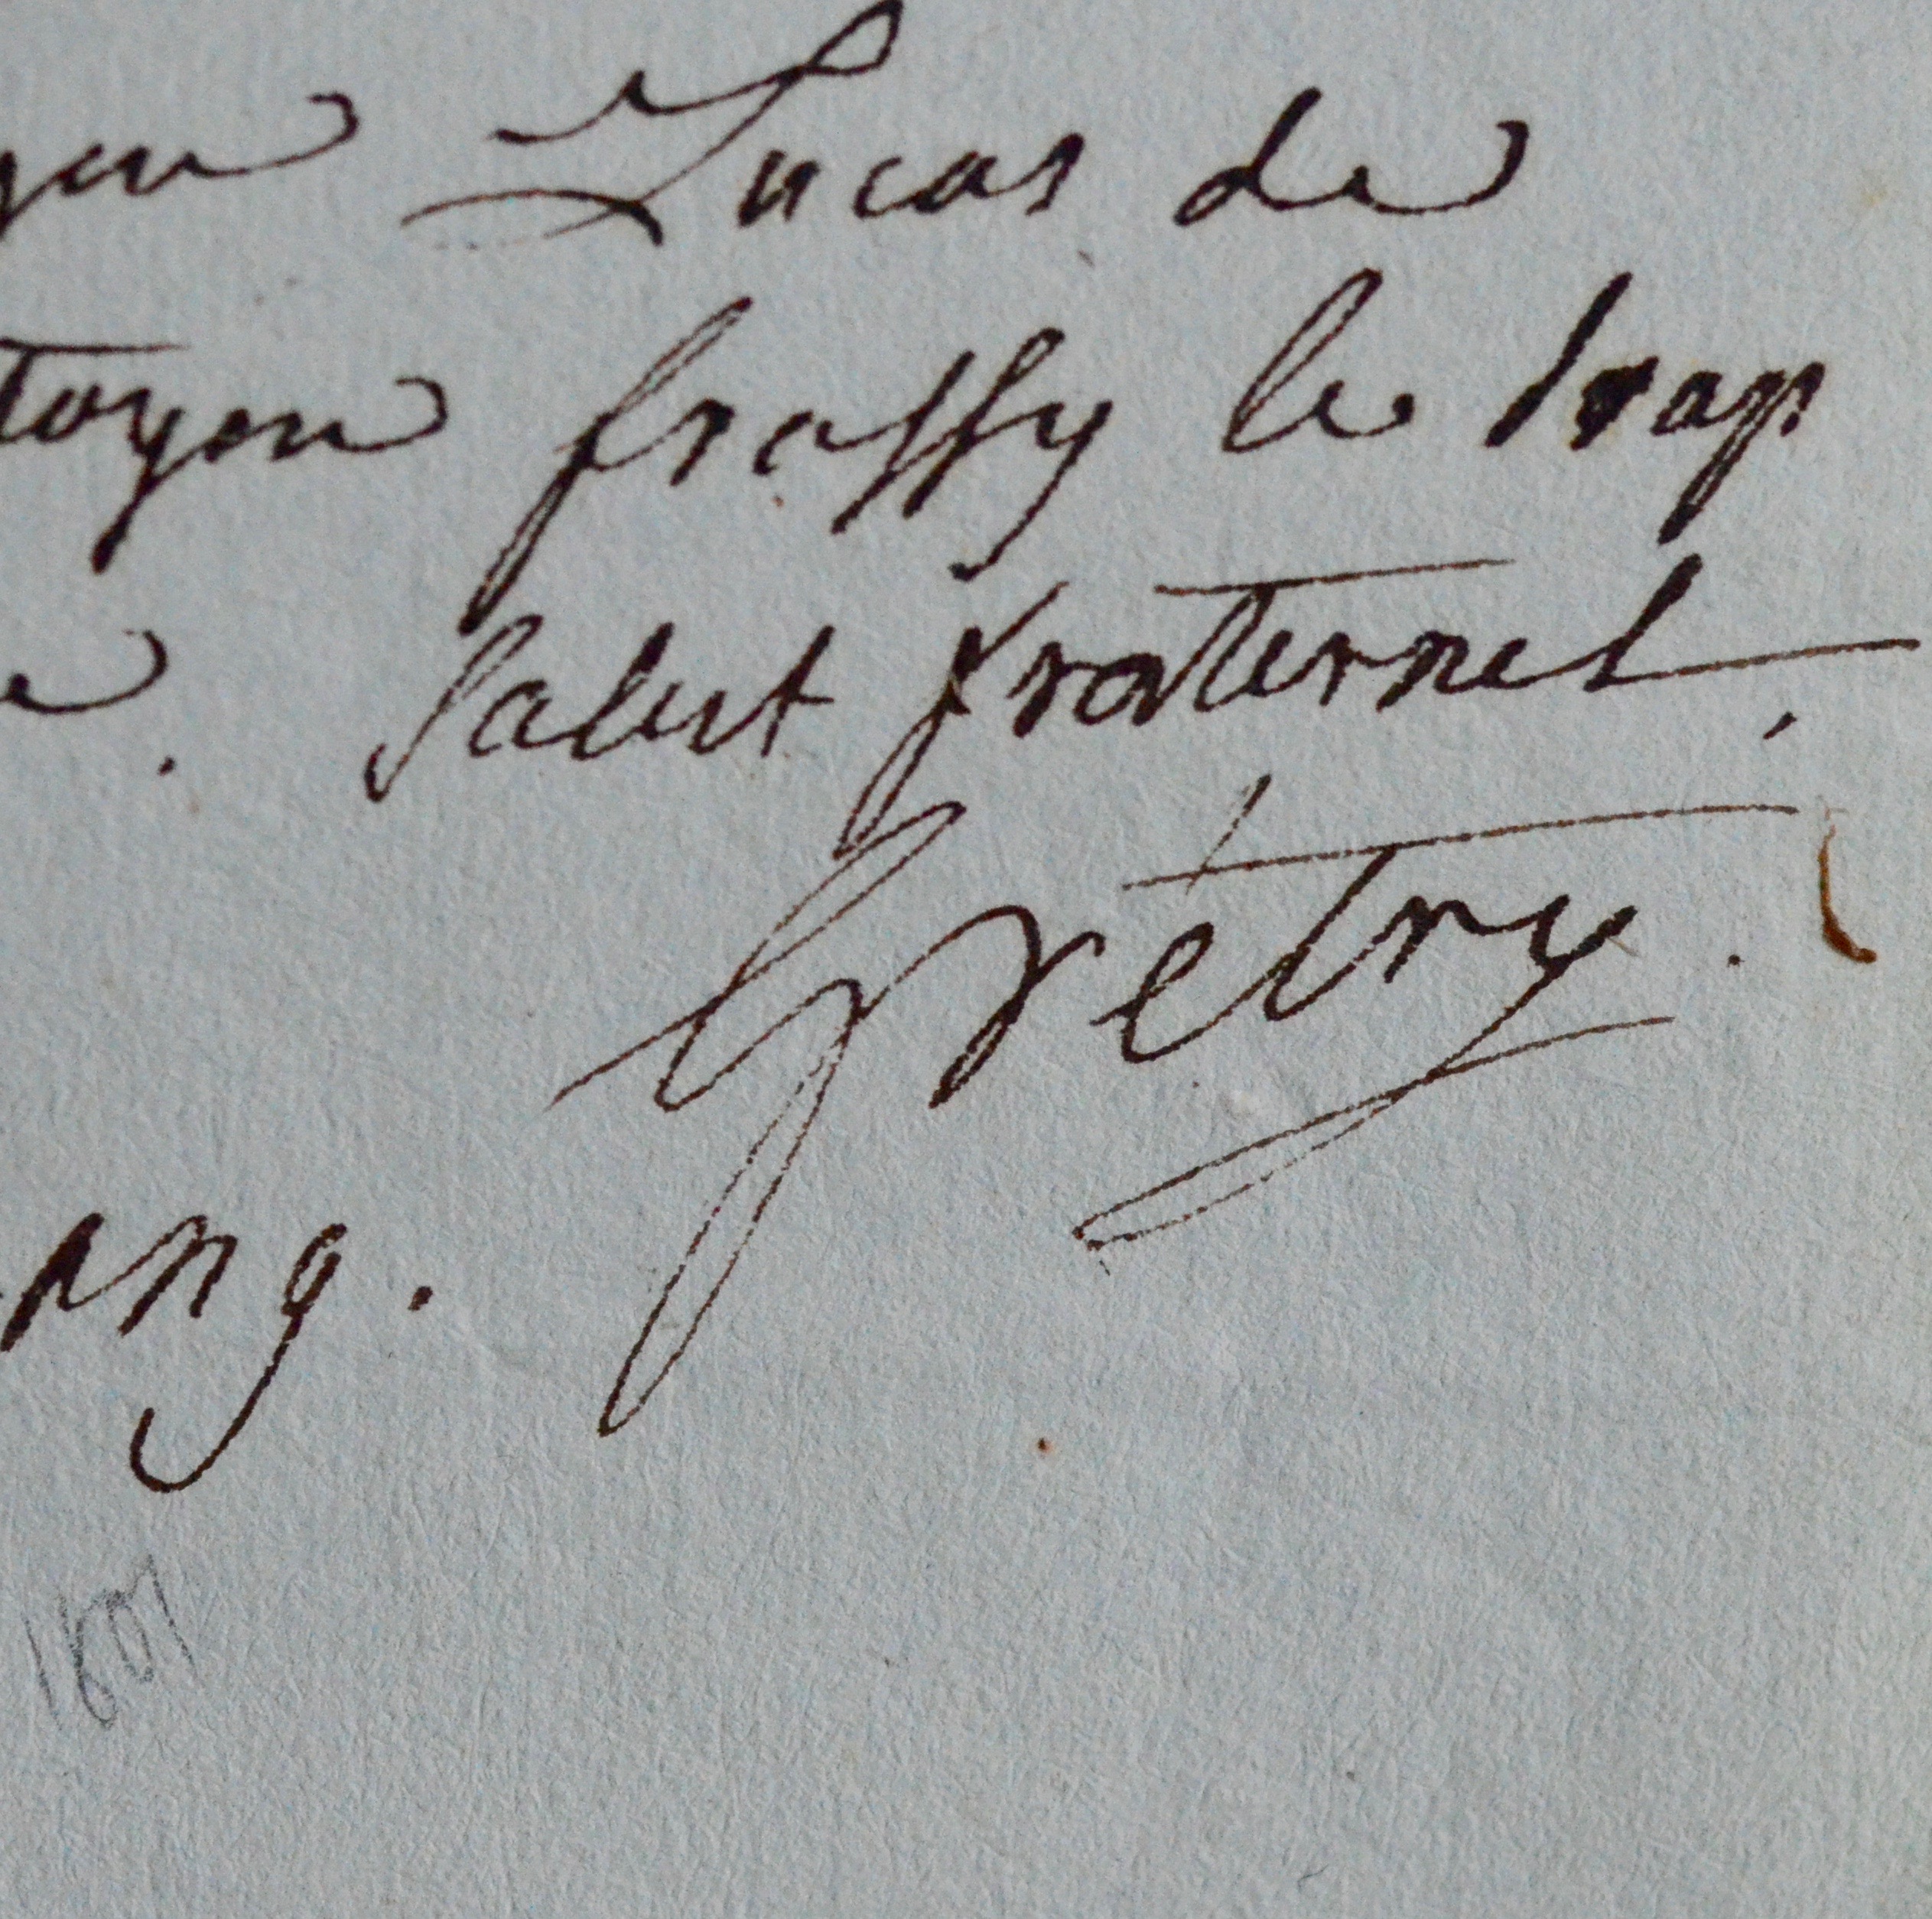 yen Lucas de
toyen frassy le drap
e. Salut fraternel,
Grétry.
ang.
1801